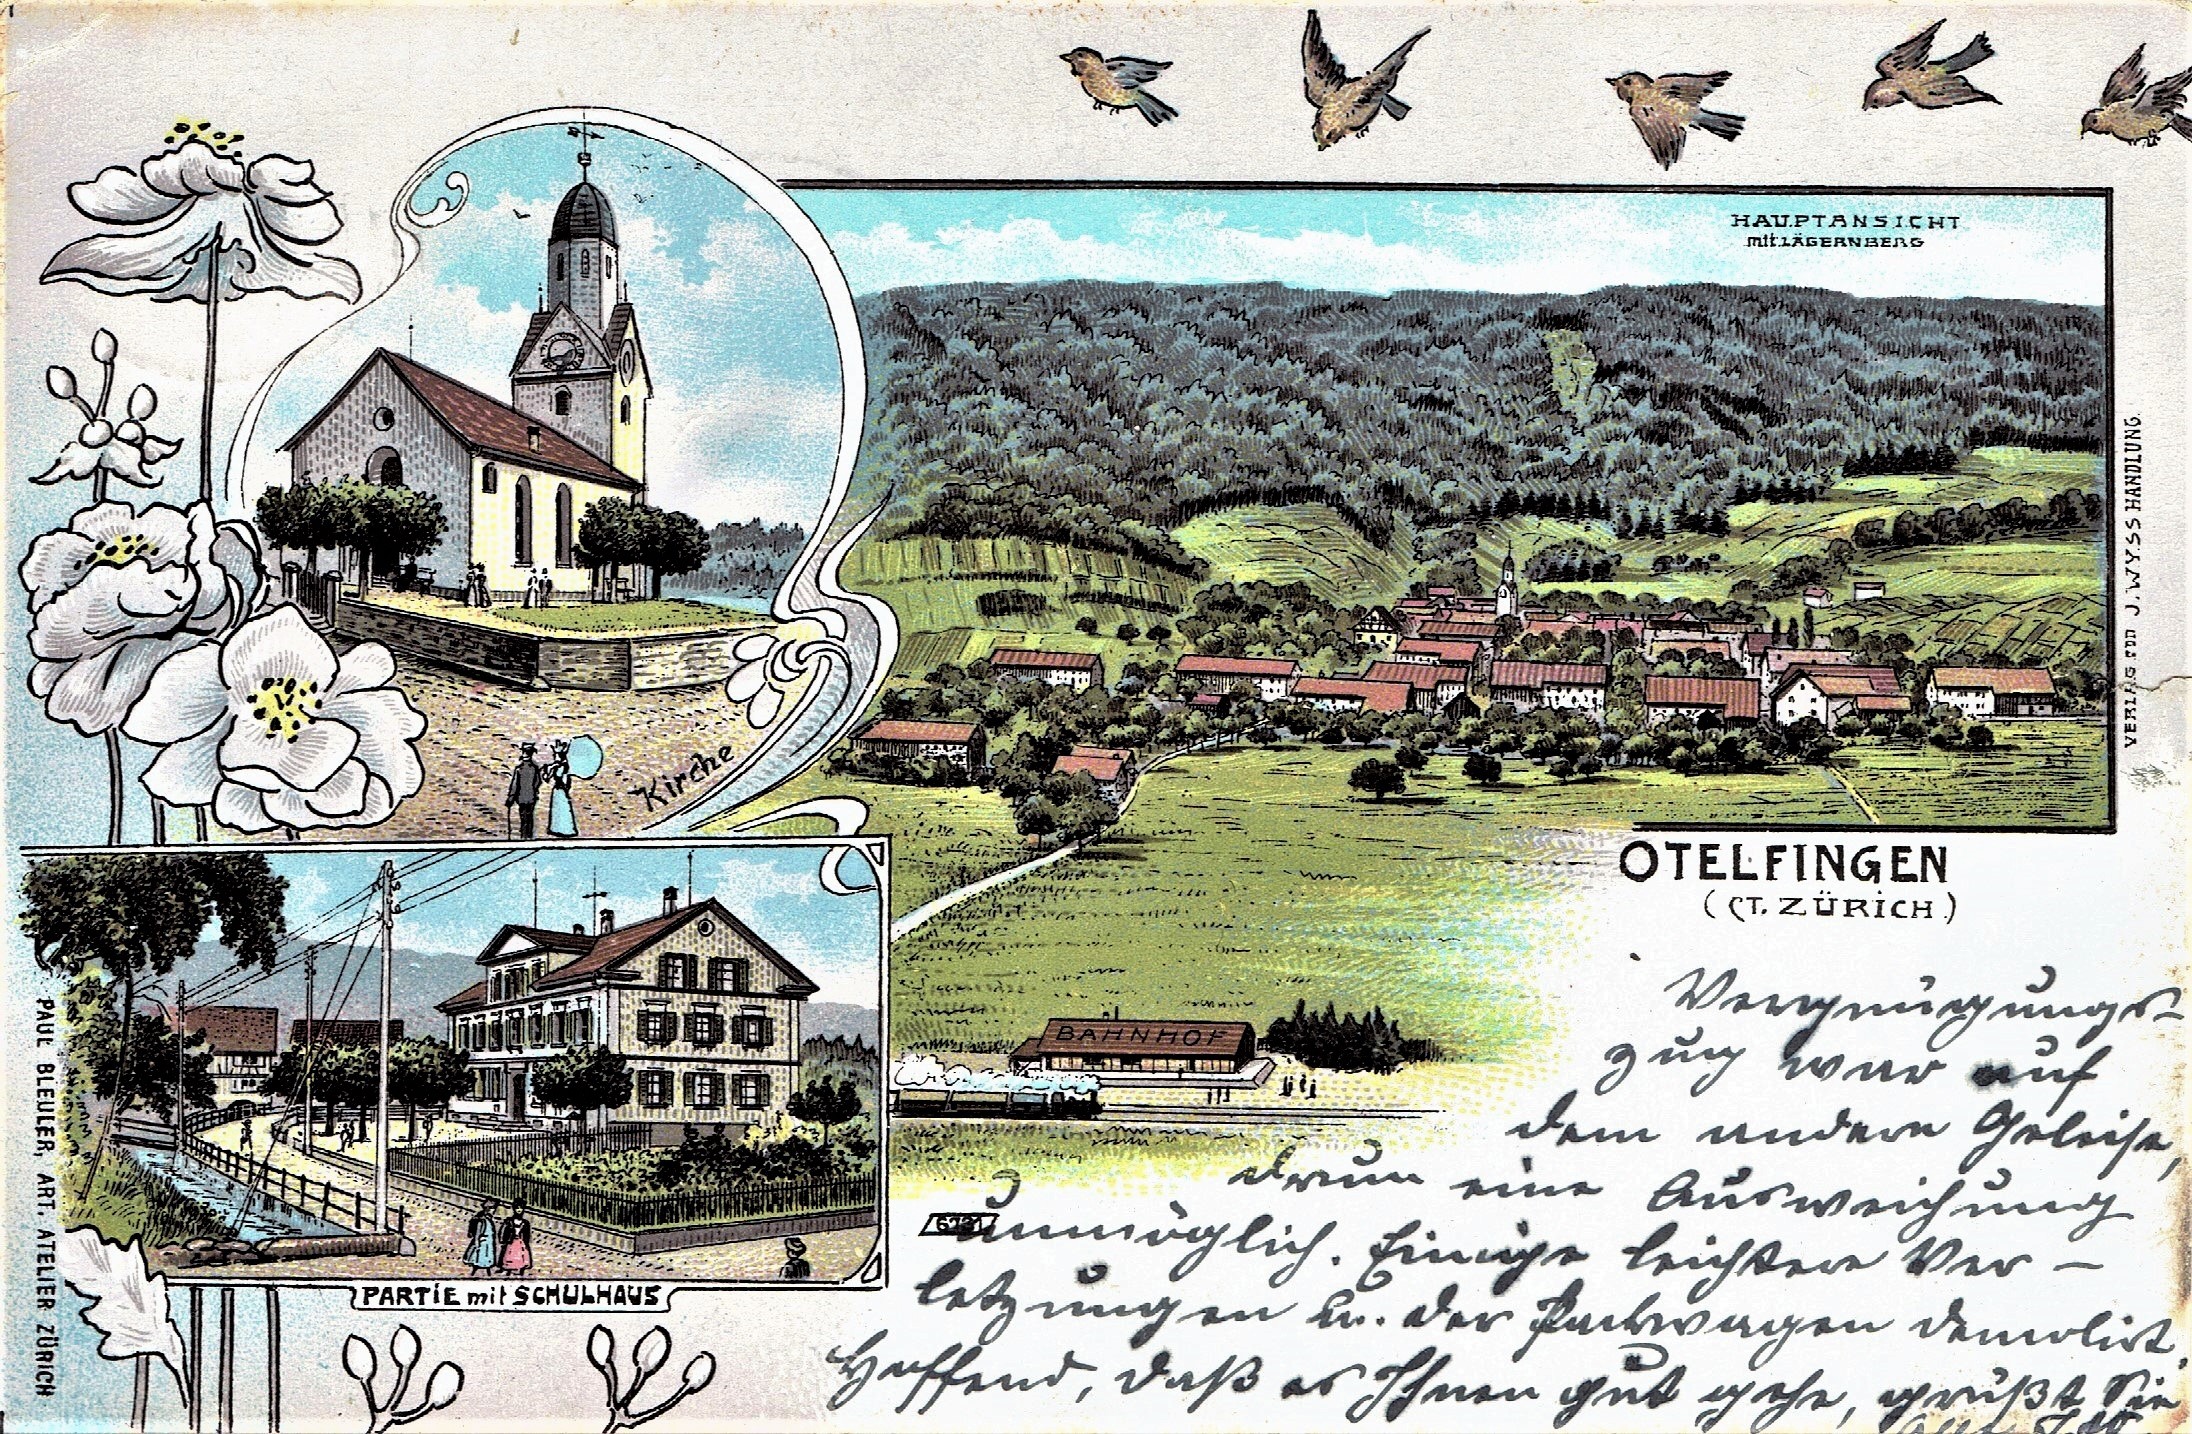 HAUPTANSICHT
mit LÄGERNBERG
Kirche
VERLAG von J. WYSS HANDLUNG.
OTELFINGEN
(CT. ZÜRICH)
BAHNHOF
PARTIE mit SCHULHAUS
PAUL BLEULER, ART. ATELIER ZÜRICH
Vergnügungs-
zug war auf
dem andern Geleise,
drum eine Ausweichung
unmöglich. Einige leichtere Ver-
letzungen u. der Packwagen demolirt.
Hoffend, daß es Ihnen gut gehe, grüßt Sie